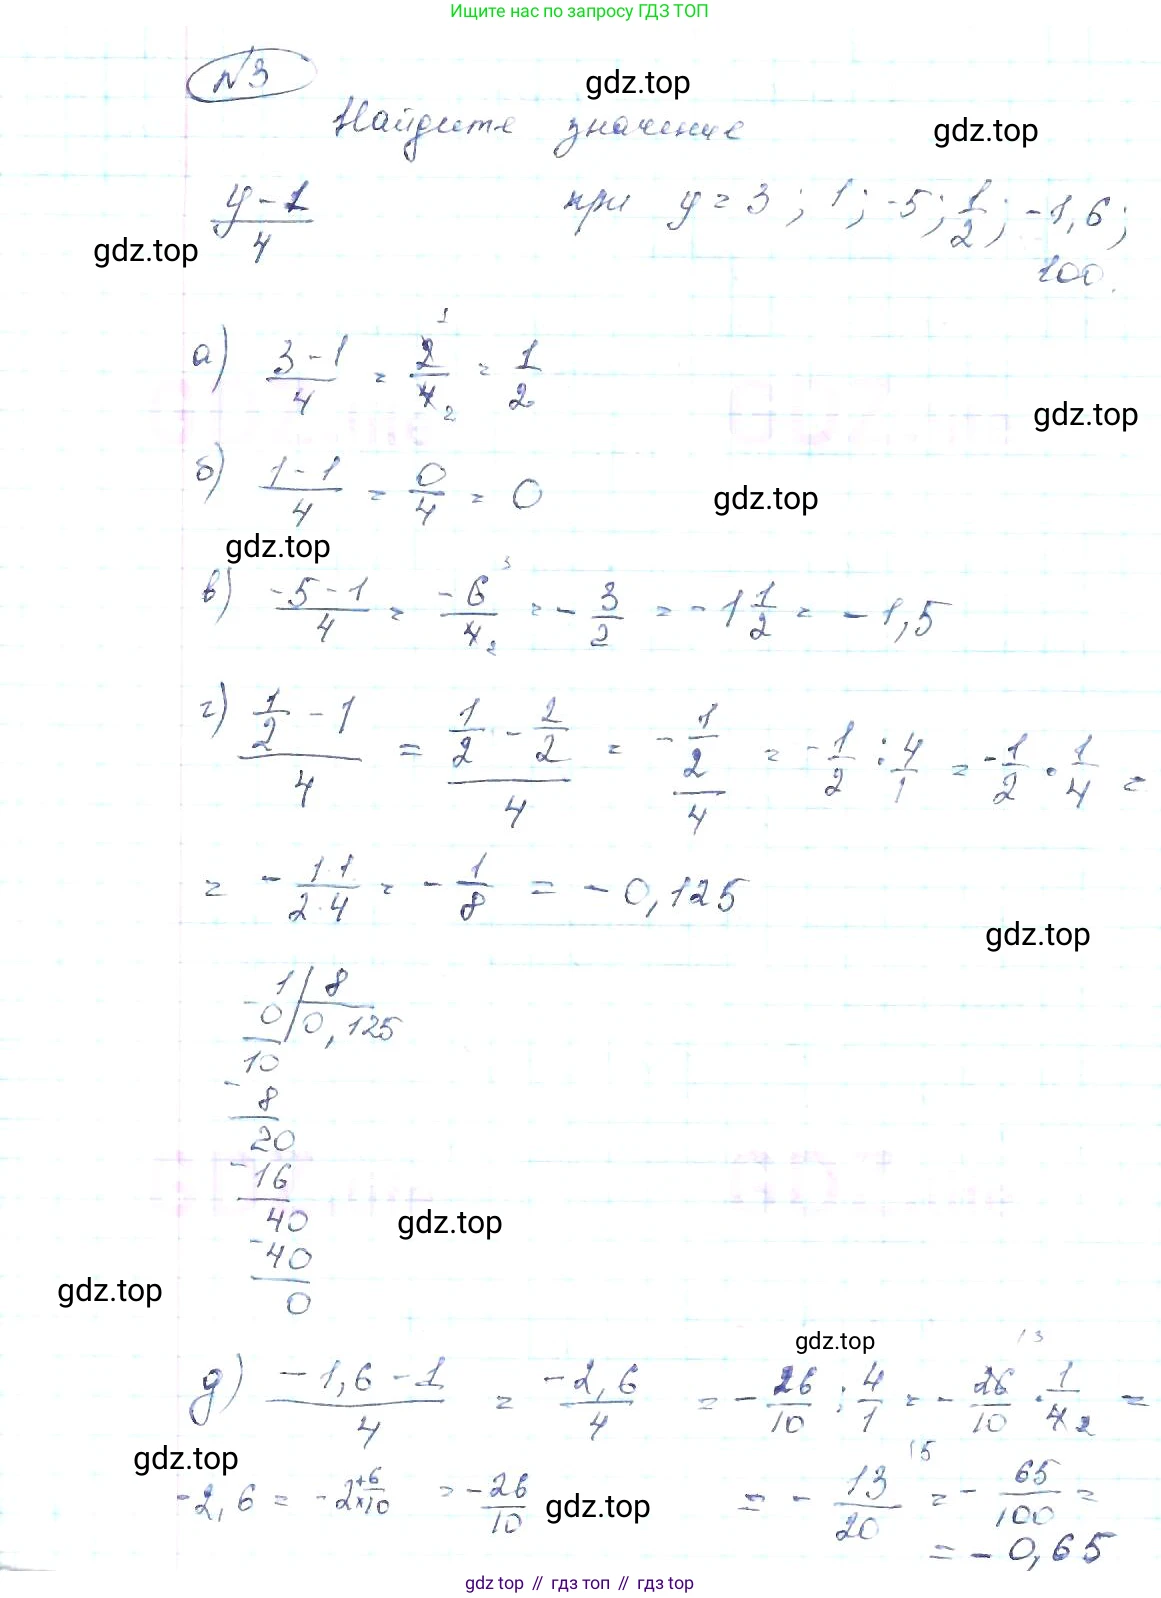 Ищите нас по запросу ГДЗ ТОП
№3
gdz.top
Найдите значение
gdz.top
(y-1)/4 при y = 3; 1; -5; 1/2; -1,6;
100.
gdz.top
а) (3-1)/4 = 2/4 = 1/2
gdz.top
б) (1-1)/4 = 0/4 = 0
gdz.top
gdz.top
в) (-5-1)/4 = -6/4 = -3/2 = -1 1/2 = -1,5
г) (1/2 - 1)/4 = (1/2 - 2/2)/4 = (-1/2)/4 = -1/2 : 4/1 = -1/2 · 1/4 =
= - (1·1)/(2·4) = - 1/8 = -0,125
gdz.top
1 | 8
-0 | 0,125
10
- 8
20
-16
40
-40
0
gdz.top
gdz.top
gdz.top
д) (-1,6-1)/4 = -2,6/4 = - 26/10 : 4/1 = - 26/10 · 1/4 =
gdz.top
-2,6 = -2 6/10 = -26/10
gdz.top
= - 13/20 = - 65/100 =
= -0,65
gdz top // гдз топ // gdz top